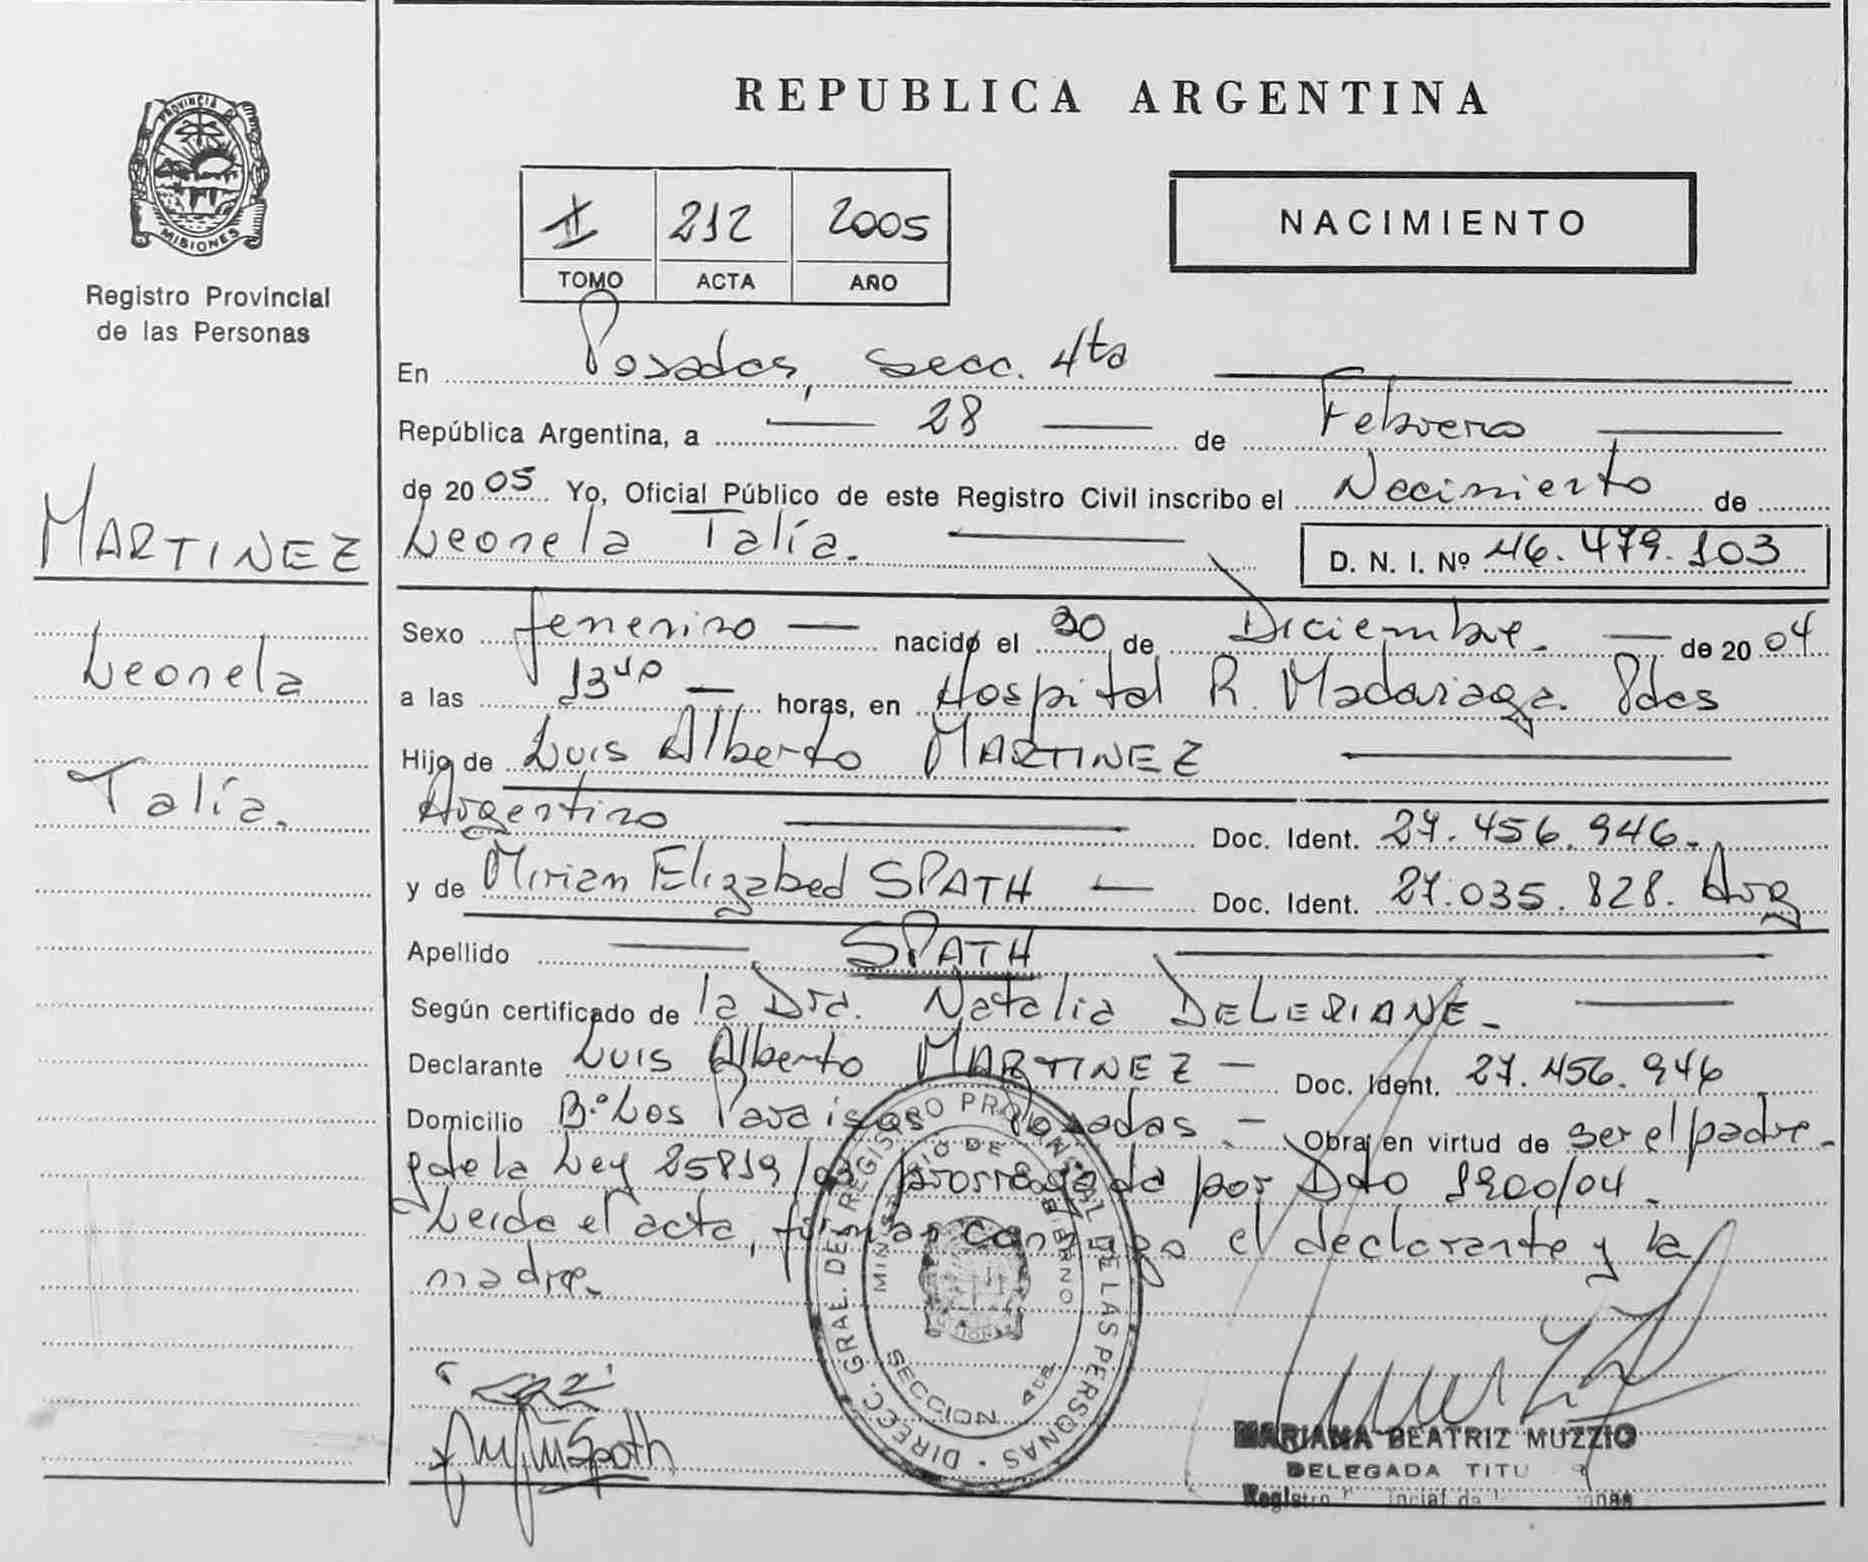 PROVINCIA
MISIONES
Registro Provincial
de las Personas
MARTINEZ
Leonela
Talía.
REPUBLICA ARGENTINA
II 212 2005
TOMO ACTA AÑO
NACIMIENTO
En Posadas, secc. 4ta
República Argentina, a 28 de Febrero
de 2005 Yo, Oficial Público de este Registro Civil inscribo el Nacimiento de
Leonela Talía. D. N. I. Nº 46.479.103
Sexo femenino nacido el 30 de Diciembre. de 2004
a las 13 40 horas, en Hospital R. Madariaga. Pdas
Hijo de Luis Alberto MARTINEZ
Argentino Doc. Ident. 27.456.946.
y de Mirian Elizabed SPATH Doc. Ident. 27.035.828. Arg
Apellido SPATH
Según certificado de la Dra. Natalia DELERIANE.
Declarante Luis Alberto MARTINEZ Doc. Ident. 27.456.946
Domicilio B.º Los Paraisos Posadas. Obra en virtud de ser el padre.
y de la Ley 25819/03 prorrogada por Dto 1900/04.
Leida el acta, firman conmigo el declarante y la
madre.
DIRECC. GRAL. DEL REGISTRO PROVINCIAL DE LAS PERSONAS
MINISTERIO DE GOBIERNO
SECCION 4ta
Spath
MARIANA BEATRIZ MUZZIO
DELEGADA TITU
Registro